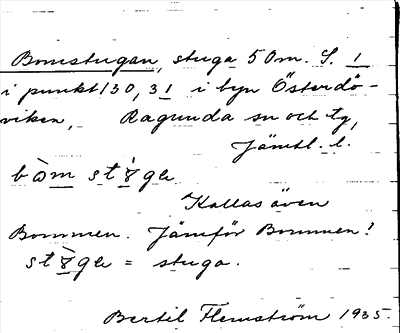 Bomstugan, stuga 50 m. S. 1
i punkt 130, 31 i byn Österdö-
viken, Ragunda sn och tg,
Jämtl. l.
Kallas även
Bommen. Jämför Bommen!
= stuga.
Bertil Flemström 1935.